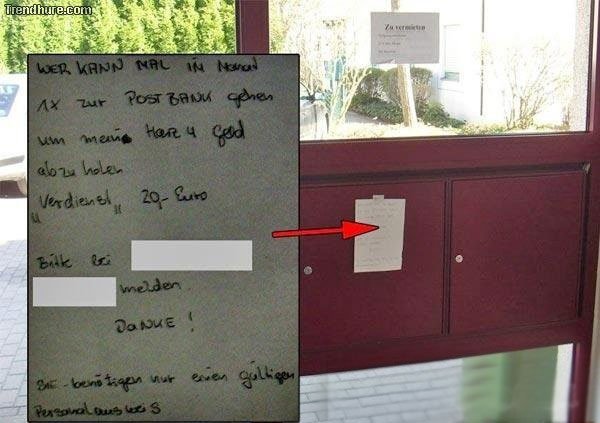 Trendhure.com
Zu vermieten
WER KANN MAL IM Monat
1x zur POSTBANK gehen
um mein Harz 4 Geld
abzuholen
"Verdienst" 20,- Euro
Bitte bei
melden.
DANKE!
Sie benötigen nur einen gültigen
Personalausweis